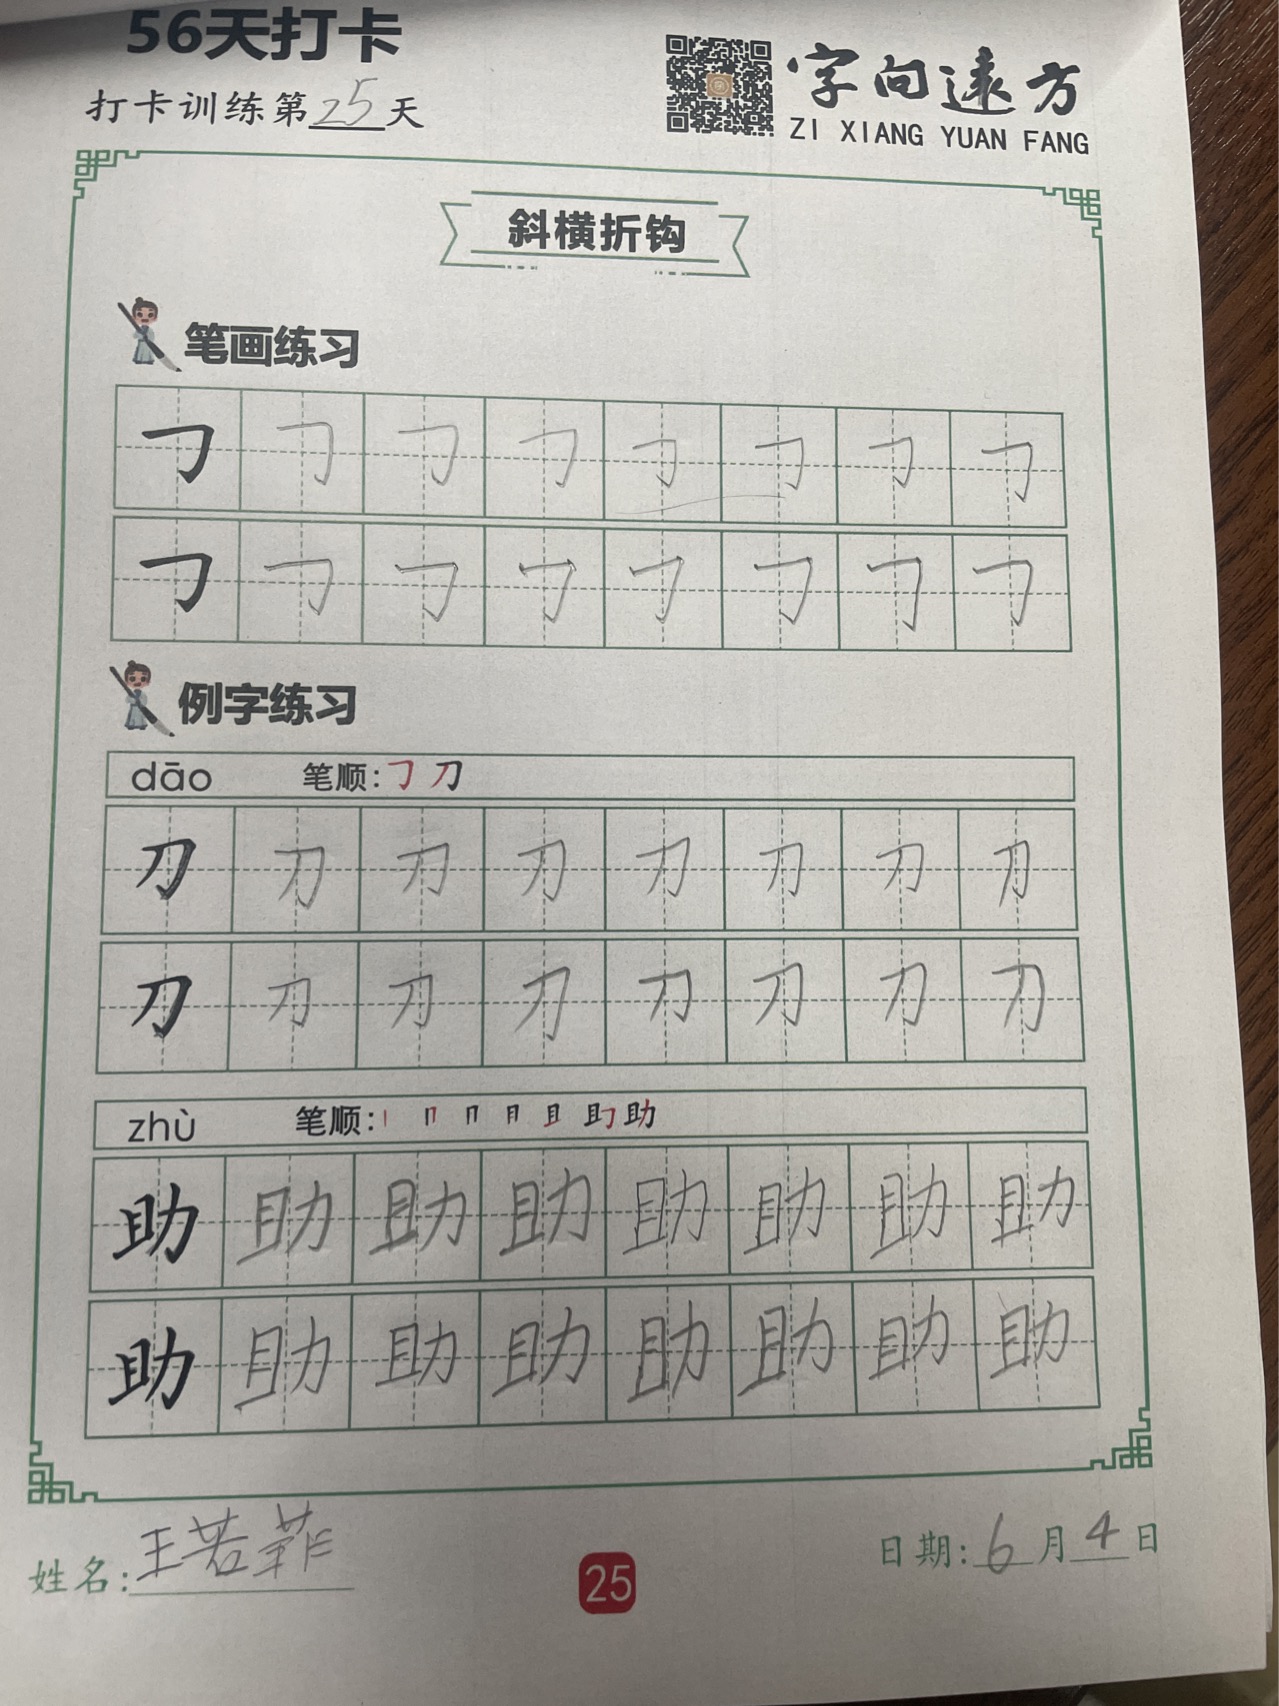 56天打卡
打卡训练第25天
字向远方
ZI XIANG YUAN FANG
斜横折钩
笔画练习
㇆ ㇆ ㇆ ㇆ ㇆ ㇆ ㇆ ㇆
㇆ ㇆ ㇆ ㇆ ㇆ ㇆ ㇆ ㇆
例字练习
dāo 笔顺:㇆ 刀
刀 刀 刀 刀 刀 刀 刀 刀
刀 刀 刀 刀 刀 刀 刀 刀
zhù 笔顺: 助
助 助 助 助 助 助 助 助
助 助 助 助 助 助 助 助
姓名:王若菲
25
日期:6月4日